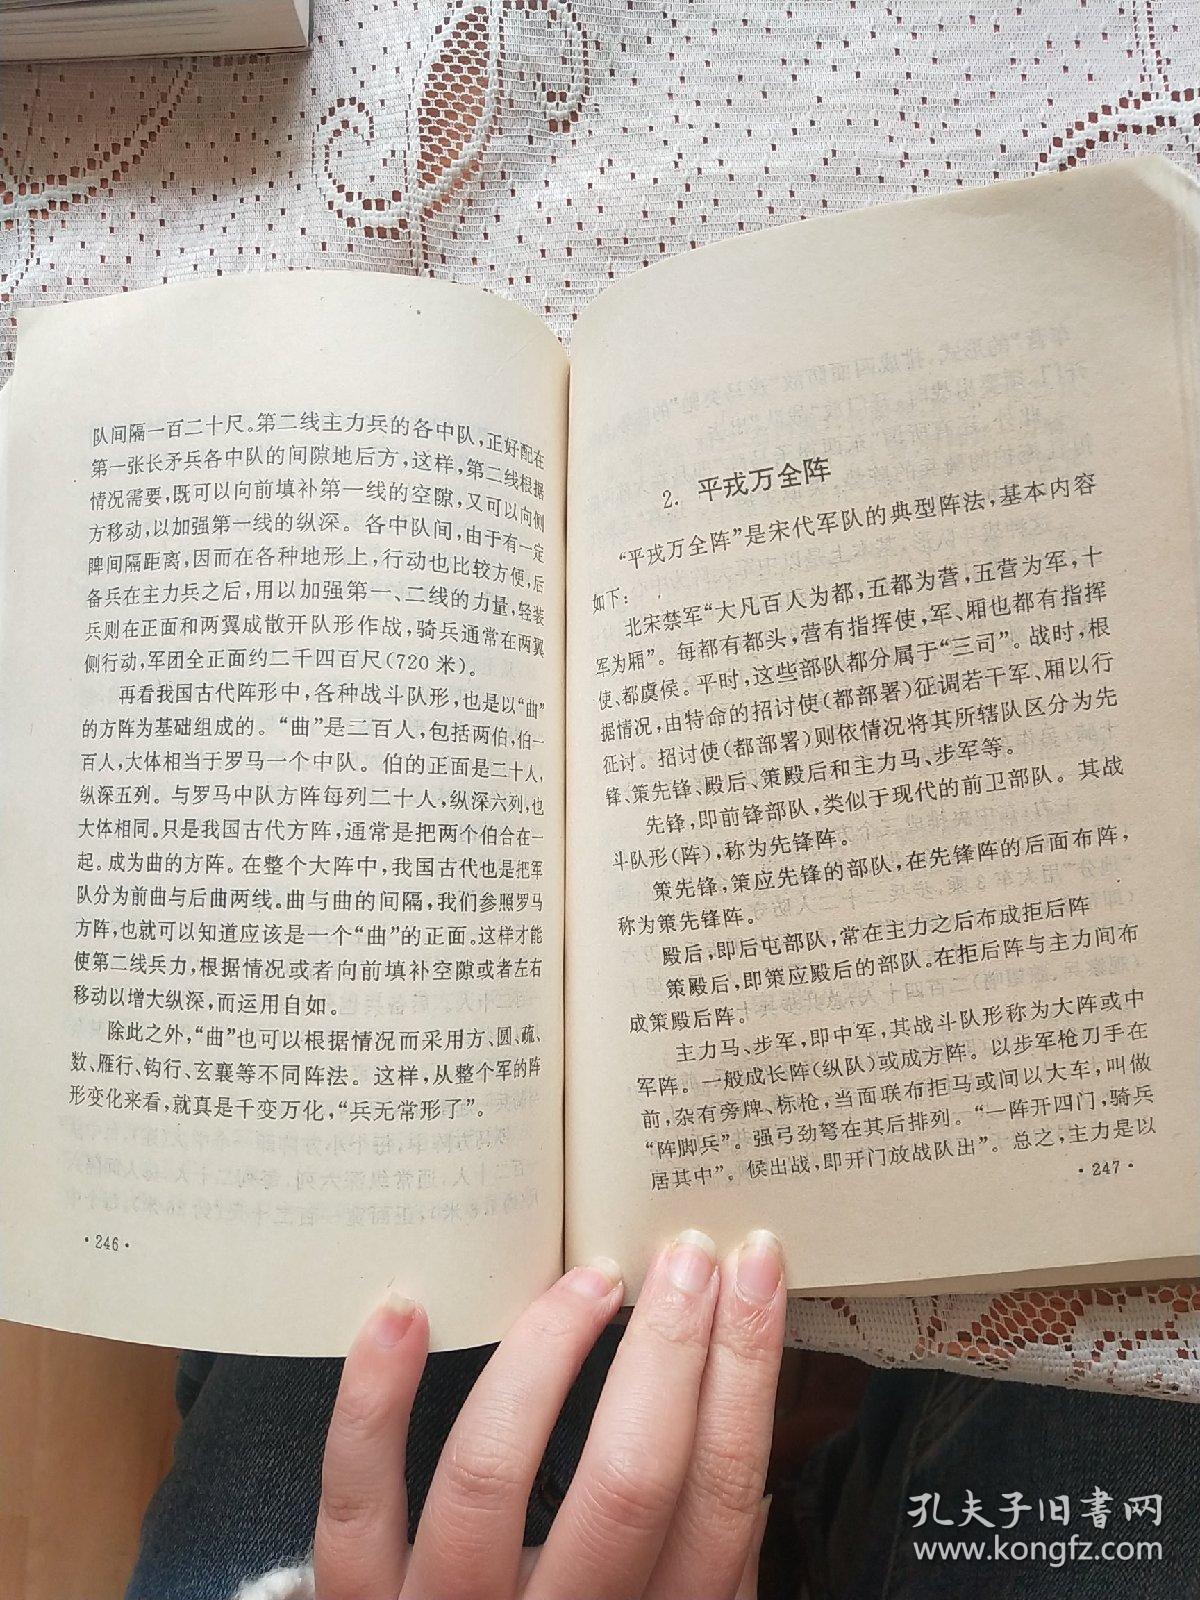 队间隔一百二十尺。第二线主力兵的各中队，正好配在
第一张长矛兵各中队的间隙地后方，这样，第二线根据
情况需要，既可以向前填补第一线的空隙，又可以向侧
方移动，以加强第一线的纵深。各中队间，由于有一定
睥间隔距离，因而在各种地形上，行动也比较方便，后
备兵在主力兵之后，用以加强第一、二线的力量，轻装
兵则在正面和两翼成散开队形作战，骑兵通常在两翼
侧行动，军团全正面约二千四百尺（720米）。
再看我国古代阵形中，各种战斗队形，也是以“曲”
的方阵为基础组成的。“曲”是二百人，包括两伯，伯一
百人，大体相当于罗马一个中队。伯的正面是二十人，
纵深五列。与罗马中队方阵每列二十人，纵深六列，也
大体相同。只是我国古代方阵，通常是把两个伯合在一
起。成为曲的方阵。在整个大阵中，我国古代也是把军
队分为前曲与后曲两线。曲与曲的间隔，我们参照罗马
方阵，也就可以知道应该是一个“曲”的正面。这样才能
使第二线兵力，根据情况或者向前填补空隙或者左右
移动以增大纵深，而运用自如。
除此之外，“曲”也可以根据情况而采用方、圆、疏、
数、雁行、钩行、玄襄等不同阵法。这样，从整个军的阵
形变化来看，就真是千变万化，“兵无常形了”。
·246·
2. 平戎万全阵
“平戎万全阵”是宋代军队的典型阵法，基本内容
如下：
北宋禁军“大凡百人为都，五都为营，五营为军，十
军为厢”。每都有都头，营有指挥使，军、厢也都有指挥
使、都虞候。平时，这些部队都分属于“三司”。战时，根
据情况，由特命的招讨使（都部署）征调若干军、厢以行
征讨。招讨使（都部署）则依情况将其所辖队区分为先
锋、策先锋、殿后、策殿后和主力马、步军等。
先锋，即前锋部队，类似于现代的前卫部队。其战
斗队形（阵），称为先锋阵。
策先锋，策应先锋的部队，在先锋阵的后面布阵，
称为策先锋阵。
殿后，即后屯部队，常在主力之后布成拒后阵
策殿后，即策应殿后的部队。在拒后阵与主力间布
成策殿后阵。
主力马、步军，即中军，其战斗队形称为大阵或中
军阵。一般成长阵（纵队）或成方阵。以步军枪刃手在
前，杂有旁牌、标枪，当面联布拒马或间以大车，叫做
“阵脚兵”。强弓劲弩在其后排列。“一阵开四门，骑兵
居其中”。候出战，即开门放战队出”。总之，主力是以
·247·
孔夫子旧書网
www.kongfz.com